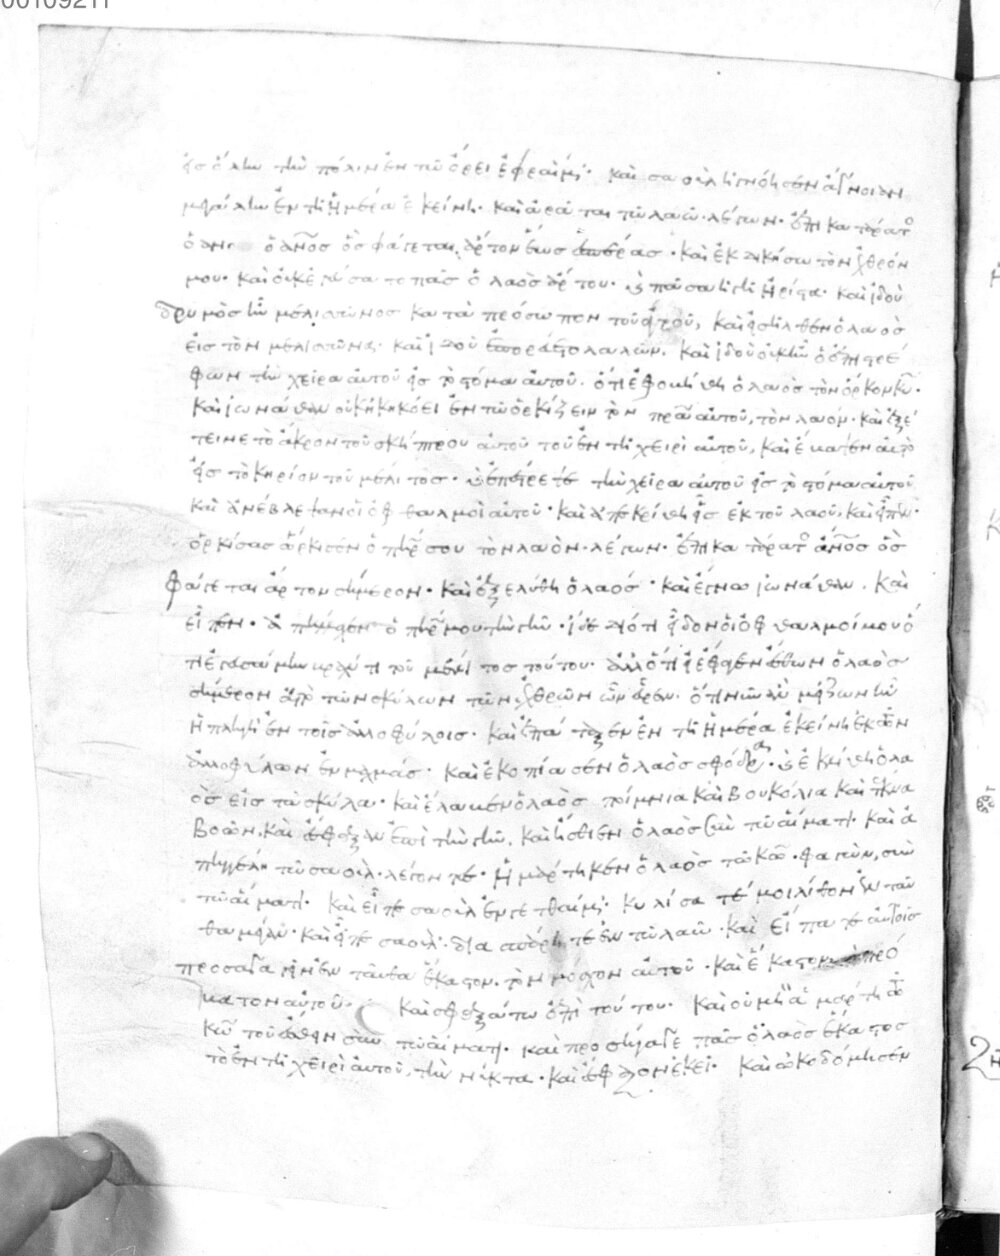 00109211
εἰς ὅλην τὴν πόλιν ἐν τῷ ὄρει ἐφραΐμ· καὶ σαοὺλ ἠγνόησεν ἄγνοιαν
μεγάλην ἐν τῇ ἡμέρα ἐκείνη· καὶ ἀρᾶται τῷ λαῷ λέγων· ἐπικατάρατ
ὁ ἄνος ὃς φάγεται ἄρτον ἕως ἑσπέρας· καὶ ἐκδικήσω τὸν ἐχθρόν
μου· καὶ οὐκ ἐγεύσατο πᾶς ὁ λαὸς ἄρτου· καὶ πᾶσα ἡ γῆ ἠρίστα· καὶ ἰδοὺ
δρυμὸς ἦν μελισσῶνος κατὰ πρόσωπον τοῦ ἀγροῦ, καὶ εἰσῆλθεν ὁ λαὸς
εἰς τὸν μελισσῶνα· καὶ ἰδοὺ ἐπορεύετο λαλῶν. καὶ ἰδοὺ οὐκ ἦν ὁ ἐπιστρέ
φων τὴν χεῖρα αὐτοῦ εἰς τὸ στόμα αὐτοῦ. ὅτι ἐφοβήθη ὁ λαὸς τὸν ὅρκον κυ·
καὶ ἰωνάθαν οὐκ ἠκηκόει ἐν τῷ ὁρκίζειν τὸν πρα αὐτοῦ, τὸν λαόν· καὶ ἐξέ
τεινε τὸ ἄκρον τοῦ σκήπτρου αὐτοῦ τοῦ ἐν τῇ χειρὶ αὐτοῦ, καὶ ἔβαψεν αὐτὸ
εἰς τὸ κηρίον τοῦ μέλιτος· καὶ ἐπέστρεψε τὴν χεῖρα αὐτοῦ εἰς τὸ στόμα αὐτοῦ
καὶ ἀνέβλεψαν οἱ ὀφθαλμοὶ αὐτοῦ· καὶ ἀπεκρίθη εἷς ἐκ τοῦ λαοῦ, καὶ εἶπεν·
ὁρκίσας ὥρκισεν ὁ πηρ σου τὸν λαὸν λέγων· ἐπικατάρατ ἄνος ὃς
φάγεται ἄρτον σήμερον· καὶ ἐξελύθη ὁ λαός· καὶ ἔγνω ἰωνάθαν. καὶ
εἶπεν· ἀπήλλαχεν ὁ πηρ μου τὴν γῆν· ἴδε διότι εἶδον οἱ ὀφθαλμοί μου ὅ
τι ἐγευσάμην βραχύ τι τοῦ μέλιτος τούτου· ἀλλ' ὅτι εἰ ἔφαγεν ἔσθων ὁ λαὸς
σήμερον ἀπὸ τῶν σκύλων τῶν ἐχθρῶν ὧν εὗρεν· ὅτι νῦν ἂν μείζων ἦν
ἡ πληγὴ ἐν τοῖς ἀλλοφύλοις· καὶ ἐπάταξεν ἐν τῇ ἡμέρα ἐκείνη ἐκ τῶν
ἀλλοφύλων ἐν μαχμάς· καὶ ἐκοπίασεν ὁ λαὸς σφόδρα· καὶ ἐκλίθη ὁ λα
ὸς εἰς τὰ σκύλα· καὶ ἔλαβεν ὁ λαὸς ποίμνια καὶ βουκόλια καὶ τέκνα
βοῶν, καὶ ἔσφαξαν ἐπὶ τὴν γῆν, καὶ ἤσθιεν ὁ λαὸς σὺν τῷ αἵματι· καὶ ἀ
πηγγέλη τῷ σαούλ· λέγοντες· ἡμάρτηκεν ὁ λαὸς τῷ κω· φαγὼν, σὺν
τῷ αἵματι· καὶ εἶπε σαοὺλ ἐν γεθθαίμ· κυλίσατέ μοι λίθον ἐνταῦ
θα μέγαν· καὶ εἶπε σαούλ· διασπάρητε ἐν τῷ λαῷ· καὶ εἴπατε αὐτοῖς
προσαγαγεῖν ἐνταῦθα ἕκαστον· τὸν μόσχον αὐτοῦ· καὶ ἕκαστον πρό
βατον αὐτοῦ· καὶ σφαξάτω ἐπὶ τούτου· καὶ οὐ μὴ ἁμάρτητε τῷ
κω τοῦ ἐσθίειν σὺν τῷ αἵματι· καὶ προσήγαγε πᾶς ὁ λαὸς ἕκαστος
τὸ ἐν τῇ χειρὶ αὐτοῦ, τὴν νύκτα· καὶ ἔσφαζον ἐκεῖ· καὶ ὠκοδόμησεν